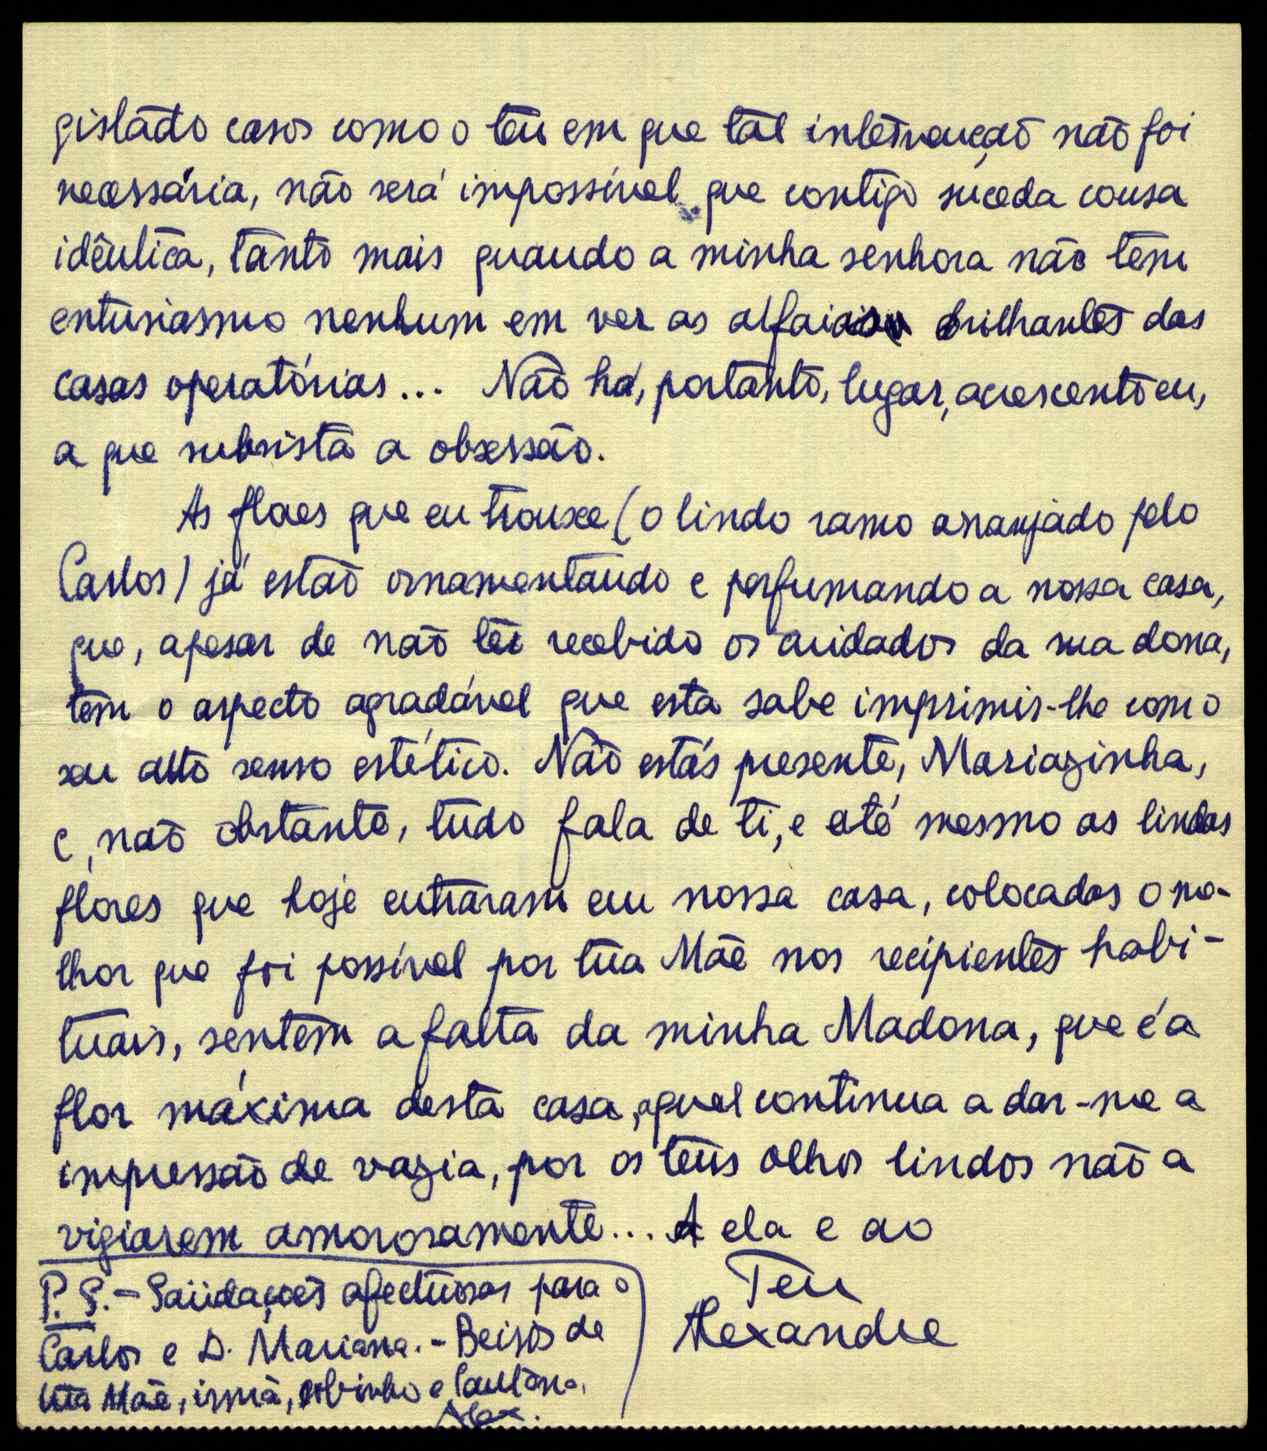 gistado casos como o teu em que tal intervenção não foi
necessária, não será impossível que contigo suceda cousa
idêntica, tanto mais quando a minha senhora não tem
entusiasmo nenhum em ver as alfaias brilhantes das
casas operatórias... Não há, portanto, lugar, acrescento eu,
a que subsista a obsessão.
As flores que eu trouxe (o lindo ramo arranjado pelo
Carlos) já estão ornamentando e perfumando a nossa casa,
que, apesar de não ter recebido os cuidados da sua dona,
tem o aspecto agradável que esta sabe imprimir-lhe com o
seu alto senso estético. Não estás presente, Mariazinha,
e, não obstante, tudo fala de ti, e até mesmo as lindas
flores que hoje entraram em nossa casa, colocadas o me-
lhor que foi possível por tua Mãe nos recipientes habi-
tuais, sentem a falta da minha Madona, que é a
flor máxima desta casa, a qual continua a dar-me a
impressão de vazia, por os teus olhos lindos não a
vigiarem amorosamente... A ela e ao
Teu
Alexandre
P. S. - Saüdações afectuosas para o
Carlos e D. Mariana. - Beijos de
tua Mãe, irmã, sobinho e
Alex.